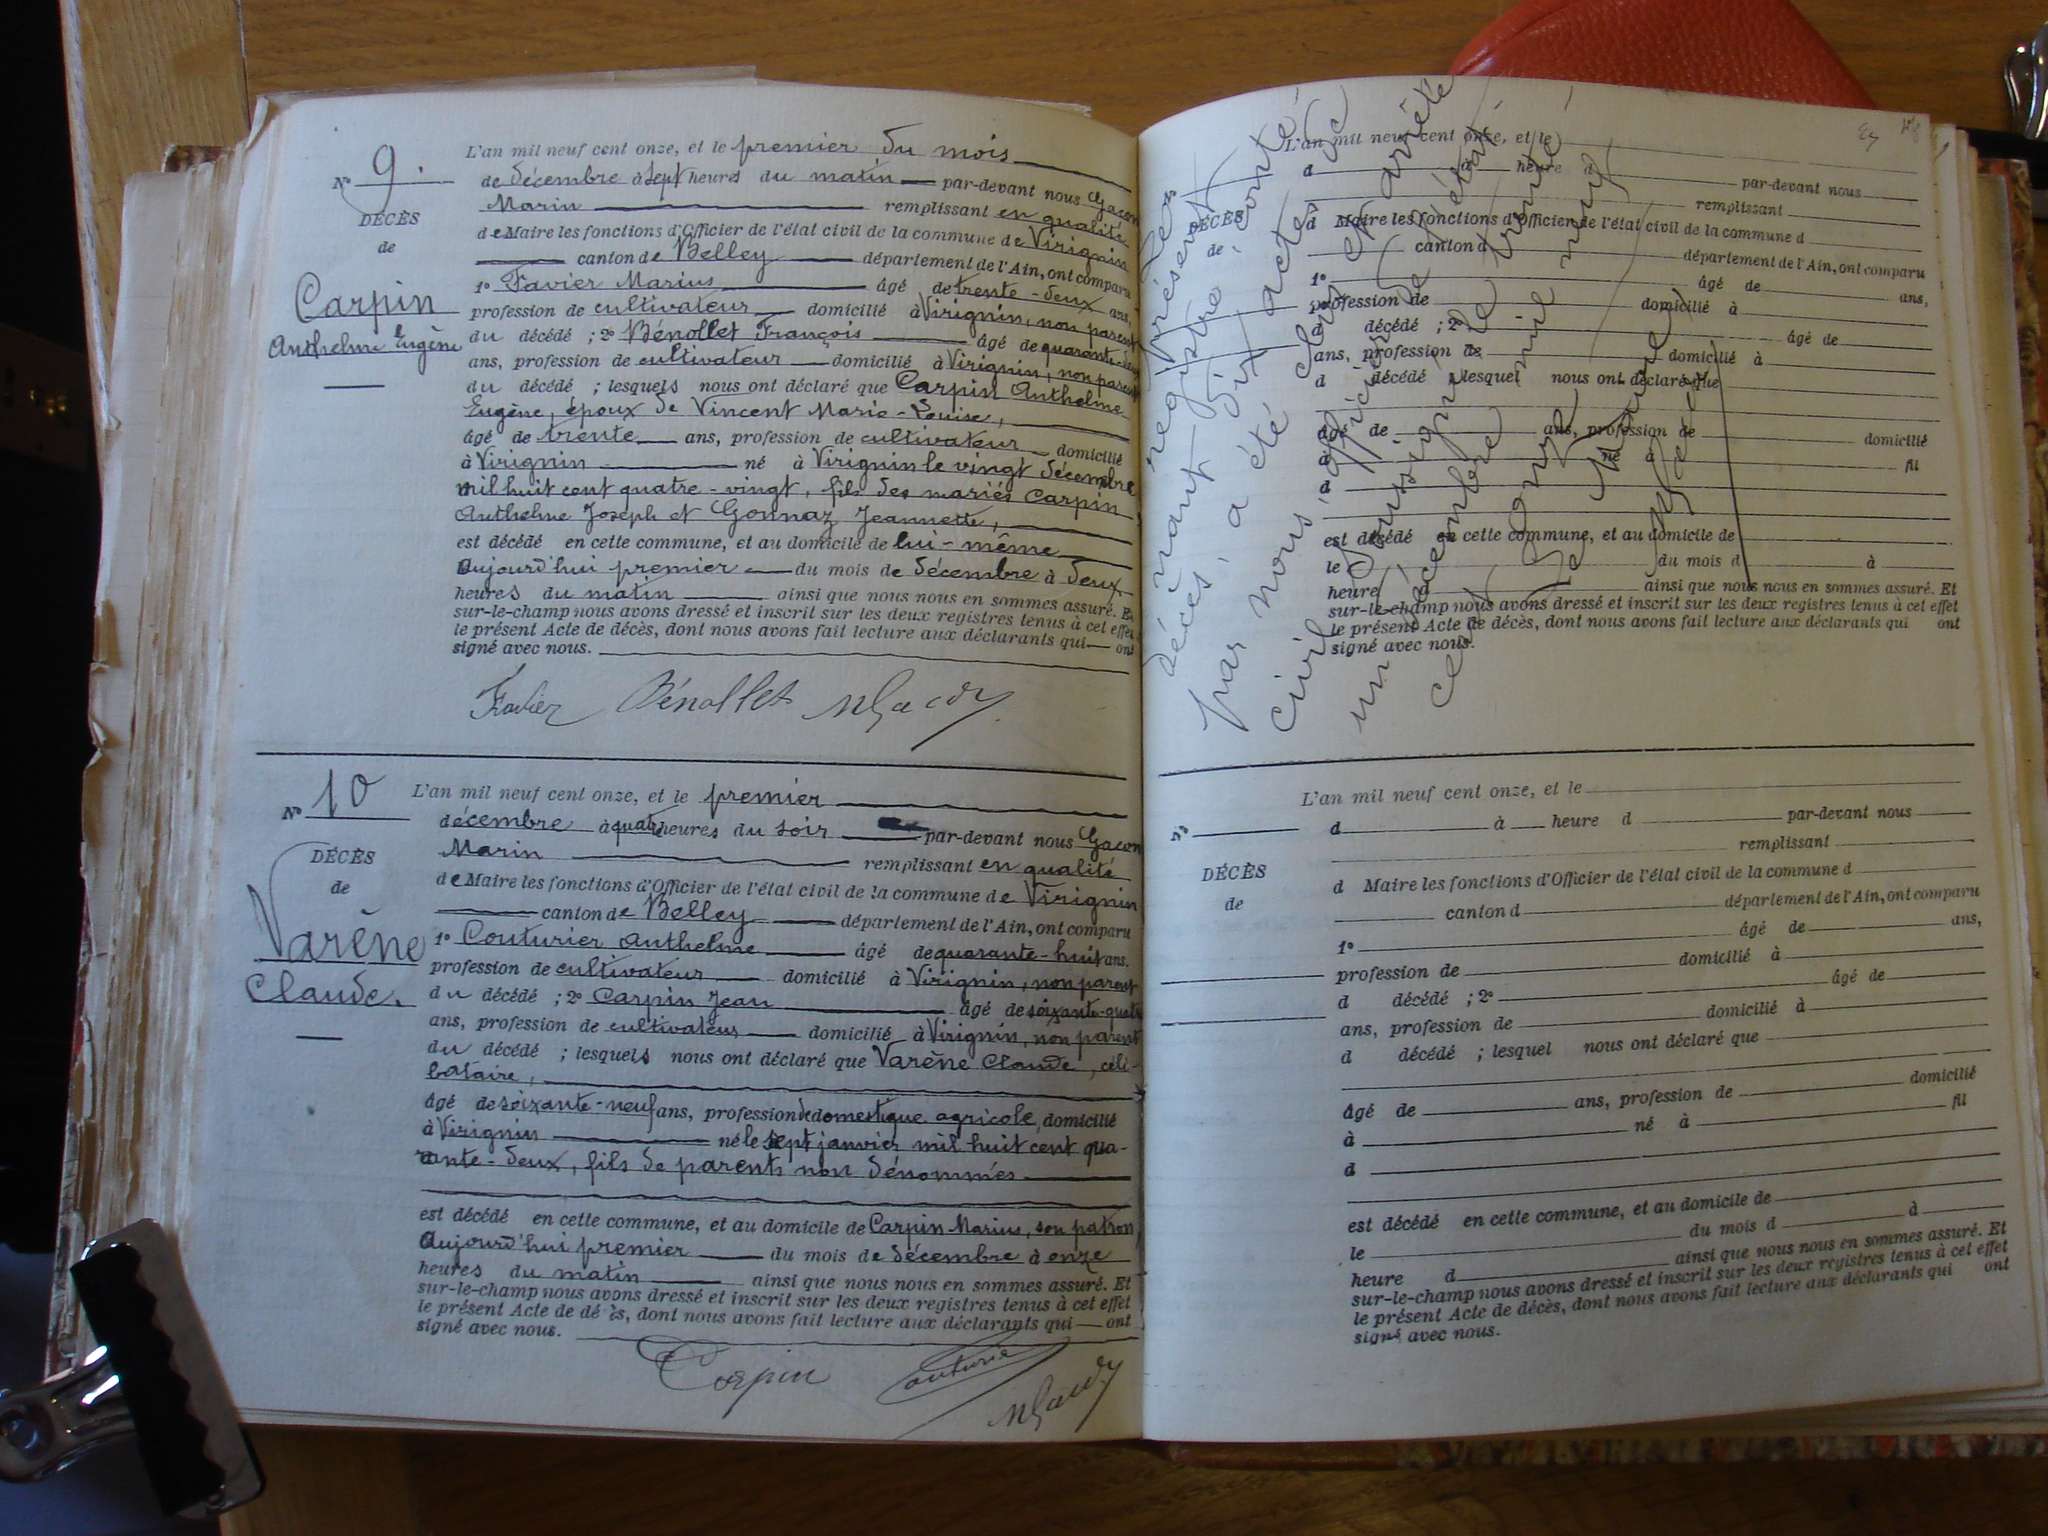 9.
L'an mil neuf cent onze, et le premier du mois
N°
de décembre à sept heures du matin par-devant nous Gacon
Marin remplissant en qualité
DÉCÈS
de Maire les fonctions d'Officier de l'état civil de la commune de Virignin
de
canton de Belley département de l'Ain, ont comparu
1° Favier Marius âgé de trente-deux ans,
Carpin
profession de cultivateur domicilié à Virignin, non parent
Anthelme Eugène
du décédé ; 2° Bénollet François âgé de quarante-deux
ans, profession de cultivateur domicilié à Virignin, non parent
du décédé ; lesquels nous ont déclaré que Carpin Anthelme
Eugène, époux de Vincent Marie-Louise,
âgé de trente ans, profession de cultivateur domicilié
à Virignin né à Virignin le vingt décembre
mil huit cent quatre-vingt, fils des mariés Carpin
Anthelme Joseph et Gonnaz Jeannette,
est décédé en cette commune, et au domicile de lui-même
aujourd'hui premier du mois de décembre à deux
heures du matin ainsi que nous nous en sommes assuré. Et
sur-le-champ nous avons dressé et inscrit sur les deux registres tenus à cet effet
le présent Acte de décès, dont nous avons fait lecture aux déclarants qui ont
signé avec nous.
Favier Bénollet
N° 10
L'an mil neuf cent onze, et le premier
décembre à quatre heures du soir par-devant nous Gacon
Marin remplissant en qualité
DÉCÈS
de Maire les fonctions d'Officier de l'état civil de la commune de Virignin
de
canton de Belley département de l'Ain, ont comparu
Varène
1° Couturier Anthelme âgé de quarante-huit ans.
profession de cultivateur domicilié à Virignin, non parent
Claude.
du décédé ; 2° Carpin Jean âgé de soixante-quatre
ans, profession de cultivateur domicilié à Virignin, non parent
du décédé ; lesquels nous ont déclaré que Varène Claude, céli-
bataire,
âgé de soixante-neuf ans, profession de domestique agricole, domicilié
à Virignin né le sept janvier mil huit cent qua-
rante-deux, fils de parents non dénommés
est décédé en cette commune, et au domicile de Carpin Marius, son patron,
aujourd'hui premier du mois de décembre à onze
heures du matin ainsi que nous nous en sommes assuré. Et
sur-le-champ nous avons dressé et inscrit sur les deux registres tenus à cet effet
le présent Acte de décès, dont nous avons fait lecture aux déclarants qui ont
signé avec nous.
Carpin
L'an mil neuf cent onze, et le
d à heure d par-devant nous
remplissant
DÉCÈS
d Maire les fonctions d'Officier de l'état civil de la commune d
de
canton d département de l'Ain, ont comparu
1° âgé de ans,
profession de domicilié à
d décédé ; 2° âgé de
ans, profession de domicilié à
d décédé ; lesquel nous ont déclaré que
âgé de ans, profession de domicilié
à né à fil
d
est décédé en cette commune, et au domicile de
le du mois d à
heure ainsi que nous nous en sommes assuré. Et
sur-le-champ nous avons dressé et inscrit sur les deux registres tenus à cet effet
le présent Acte de décès, dont nous avons fait lecture aux déclarants qui ont
signé avec nous.
présent registre
conté
nant dix actes de
décès, a été clos et arrêté
par nous, officier de l'état
civil soussigné le trente
un décembre mil neuf
cent onze
Le Maire
N°
L'an mil neuf cent onze, et le
d à heure d par-devant nous
remplissant
DÉCÈS
d Maire les fonctions d'Officier de l'état civil de la commune d
de
canton d département de l'Ain, ont comparu
1° âgé de ans,
profession de domicilié à
d décédé ; 2° âgé de
ans, profession de domicilié à
d décédé ; lesquel nous ont déclaré que
âgé de ans, profession de domicilié
à né à fil
d
est décédé en cette commune, et au domicile de
le du mois d à
heure d ainsi que nous nous en sommes assuré. Et
sur-le-champ nous avons dressé et inscrit sur les deux registres tenus à cet effet
le présent Acte de décès, dont nous avons fait lecture aux déclarants qui ont
signé avec nous.